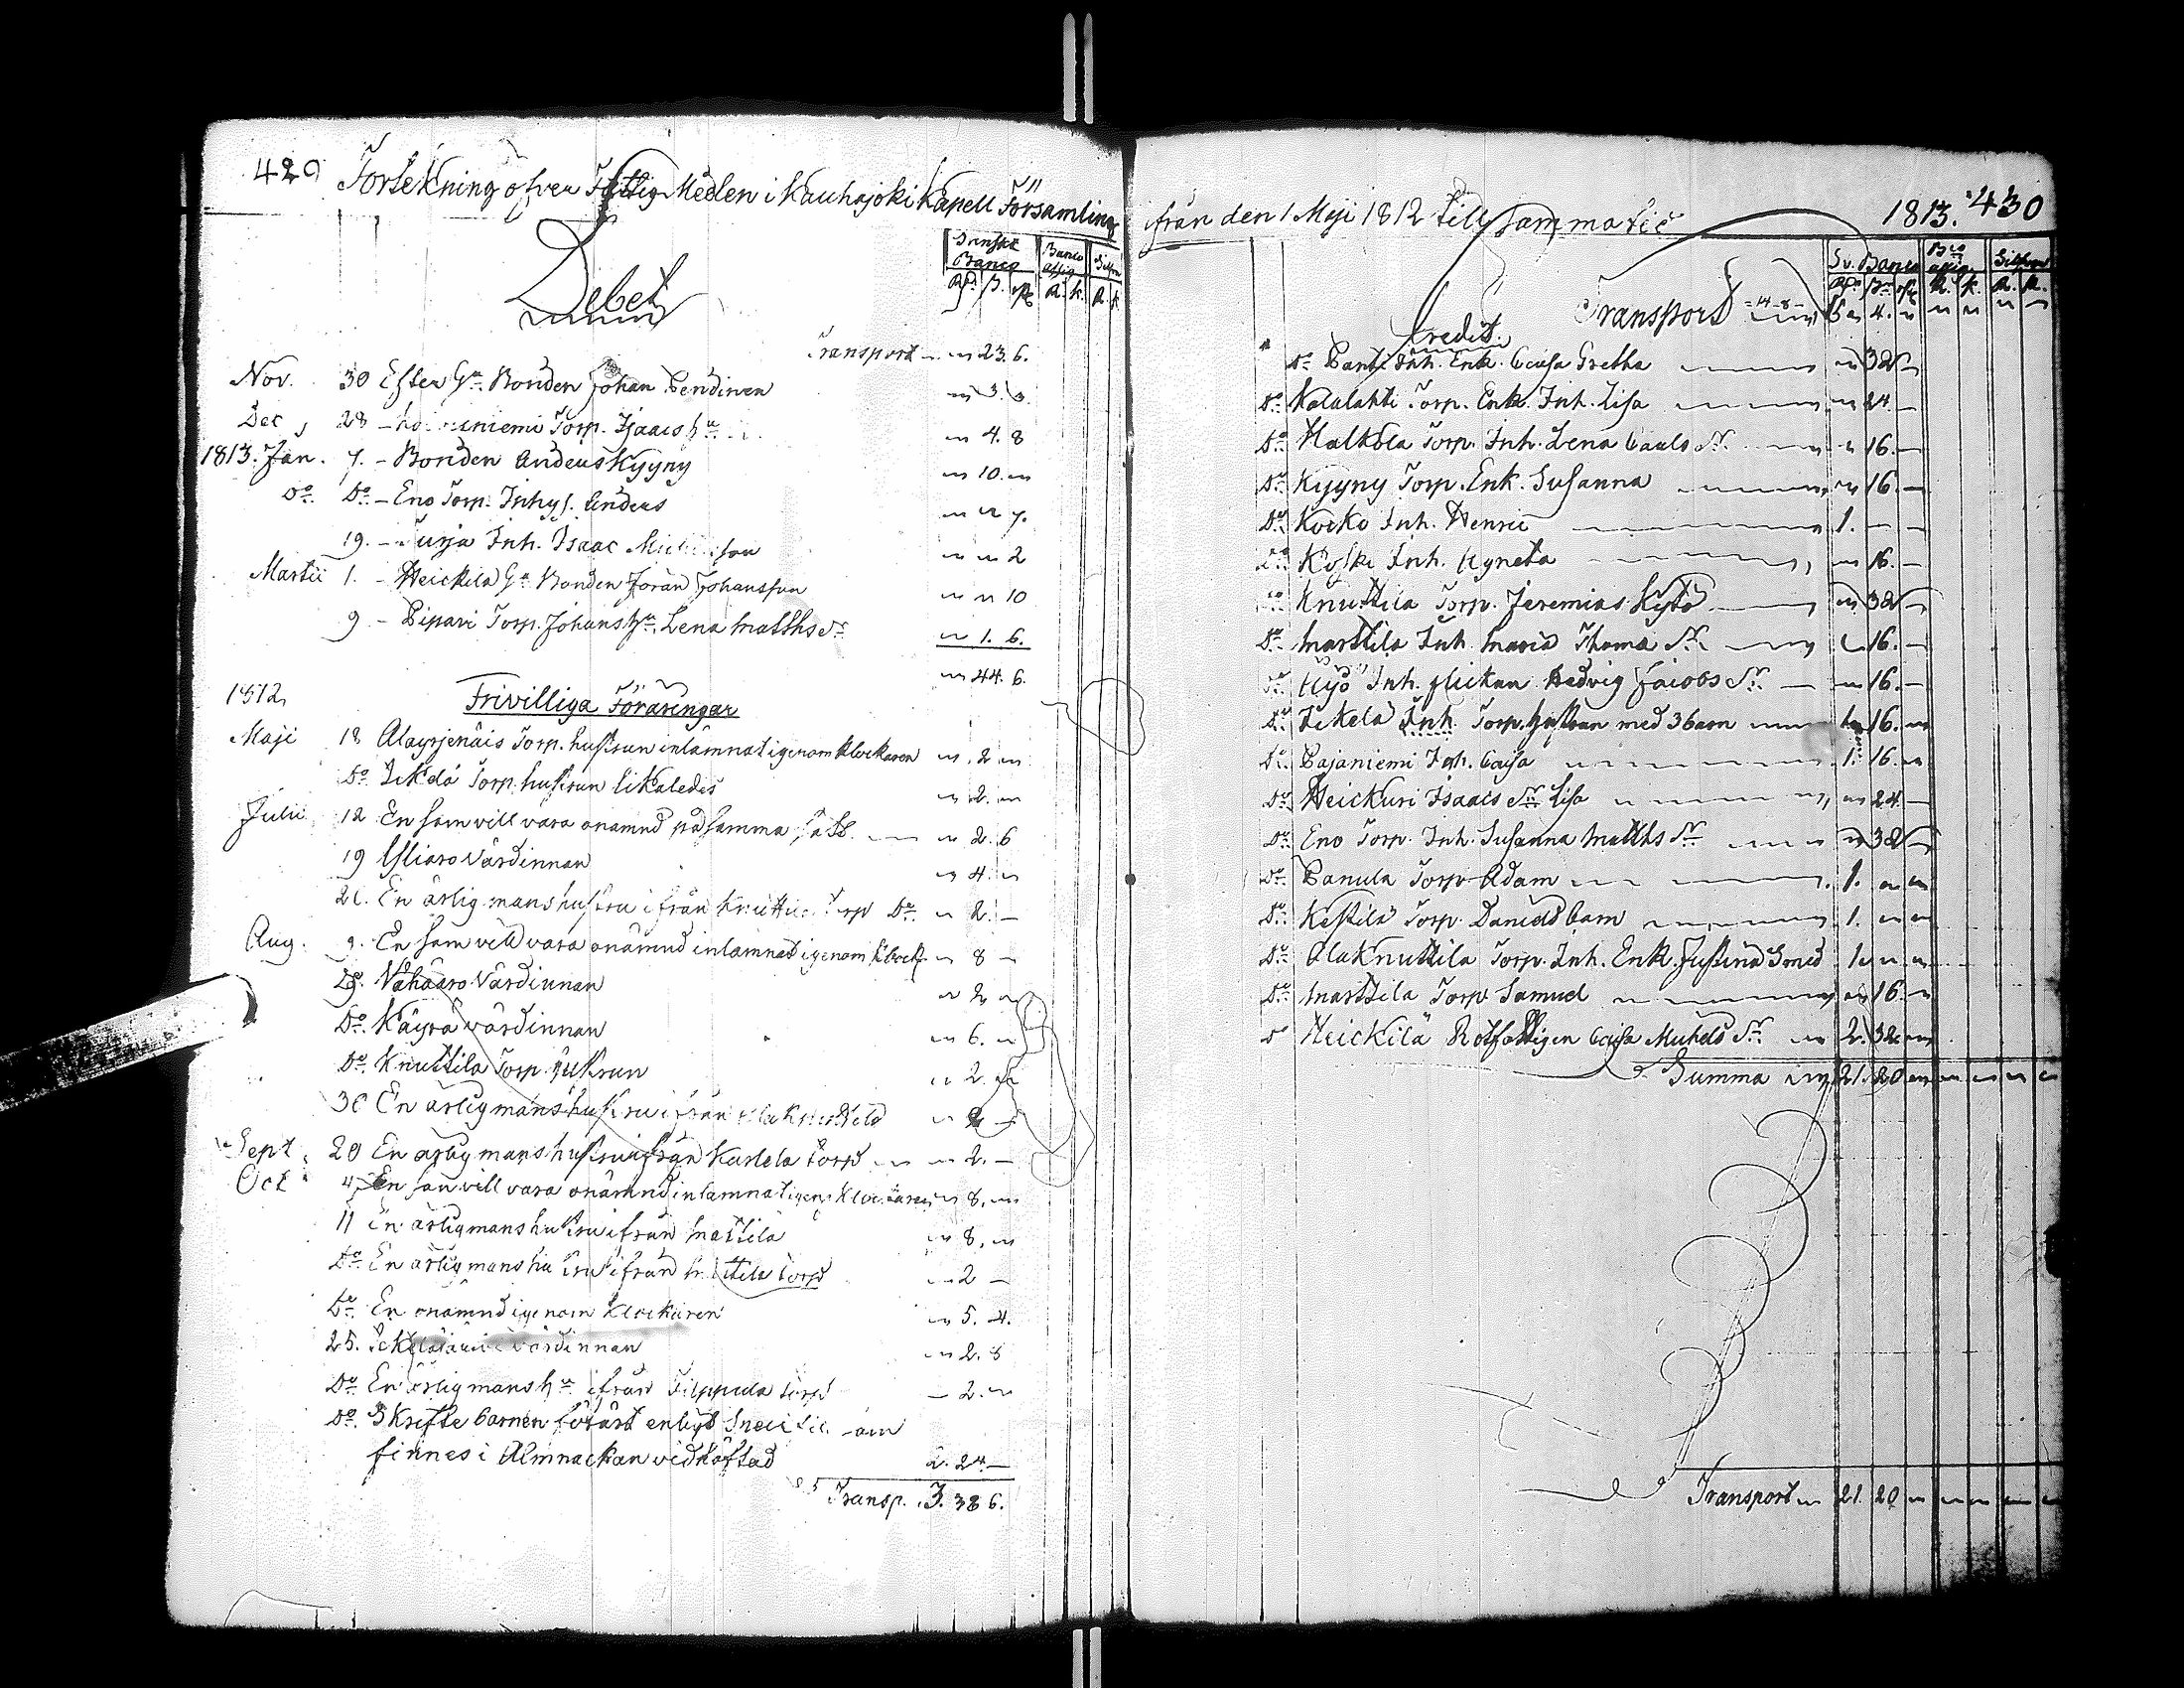 429 Förtekning öfver Fattig Medlen i Kauhajoki Kapell Församling
Debet
Svenska Banco Banco assig. Silfver
Rd. ß. rst. R. k. R. k.
Transport 23. 6.
Nov. 30 Efter Gn. Bonden Johan Pendinen 3.
Dec 28 Torp. Isaacs hu 4. 8
1813. Jan. 7. - Bonden Anders Kyyny 10.
Do. Do. - Eno Torp. Inhys. Anders 7.
19. - Inh. Isaac 2
Martii 1. - Heickilä Gn Bonden Jöran Johansson 10
9. - Pipari Torp. Johans hu. Lena Matths dr. 1. 6.
44. 6.
1812, Frivilliga Föräringar
Maji 18 Torp. hustrun inlämnat igenom klockaren 2
Do. Ikelä Torp. hustrun likaledes 2.
Julii 12 En som vill vara onämnd på samma sätt 2. 6
19 Yliaro Värdinnan 4.
26. En ärlig mans hustru ifrån Torp Do. 2. -
Aug. 9. En som vill vara onämnd inlämnad igenom klock 8 -
Do. Vähäaro Värdinnan 2
Do. Käyrä värdinnan 6.
Do. Knuttila Torp. hustrun 2.
30 En ärlig mans hustru ifrån 2 -
Sept 20 En ärlig mans hustru ifrån torp 2. -
Oct 4 En som vill vara onämnd inlämnat igen. Klockaren 8.
11 En ärlig mans hustru ifrån Mattila 8.
Do. En ärlig mans hustru ifrån torp 2 -
Do. En onämnd igenom Klockaren 5. 4.
25. värdinnan 2. 8
Do. En ärlig mans hu ifrån Filppula torp 2.
Do. Skrifte barnen förärt enligt som
finnes i Almnackan vidhäftad 2. 24 -
Transp. 3. 38 6.
ifrån den 1 Maji 1812 till samma tid 1813. 430
Sv. Banco Bco assig. Silfver
Rd. ß. rst. R. k. R. k.
Transport - 14 - 8 - 6 4.
Credit.
Do. Inh. Enk. Caisa Gretha 32 -
Do. Torp. Enk. Inh. Lisa 24. -
Do. Halkola Torp. Inh. Lena Pauls dr. 16. -
Do. Kyyny Torp. Enk. Susanna 16. -
Do. Kocko Inh. Henric 1. - -
Do. Koski Inh. Agneta 16. -
Do. Knuttila Torp. Jeremias Kytö 32 -
Do. Marttila Inh. Maria Thoma dr. 16. -
Do. Inh. flickan Hedvig Jacobs dr. 16. -
Do. Ikelä Inh. Torp. hustrun med 3 barn 1 16.
Do. Pajaniemi Inh. Caisa 1. 16.
Do. Heickuri Isaacs dr. Lisa 24 -
Do. Eno Torp. Inh. Susanna Matths dr. 32 -
Do. Panula Torp Adam 1.
Do. Kestilä Torp. Daniels barn 1.
Do. Alaknuttila Torp. Inh. Enk. Justina Smed 1
Do. Marttila Torp Samuel 16. -
Do Heickilä Rotfattigen Caisa Michels dr. 2. 32
Summa 21. 20
Transport 21. 20